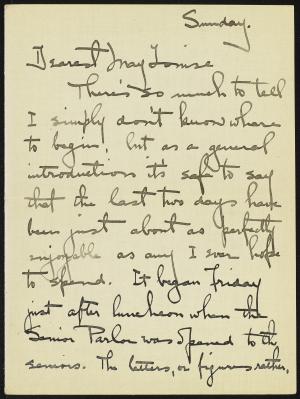 Sunday.
Dearest May Louise
There's so much to tell
I simply don't know where
to begin, but as a general
introduction it's safe to say
that the last two days have
been just about as perfectly
enjoyable as any I ever hope
to spend. It began Friday
just after luncheon when the
Senior Parlor was opened to the
seniors. The letters, or figures rather,